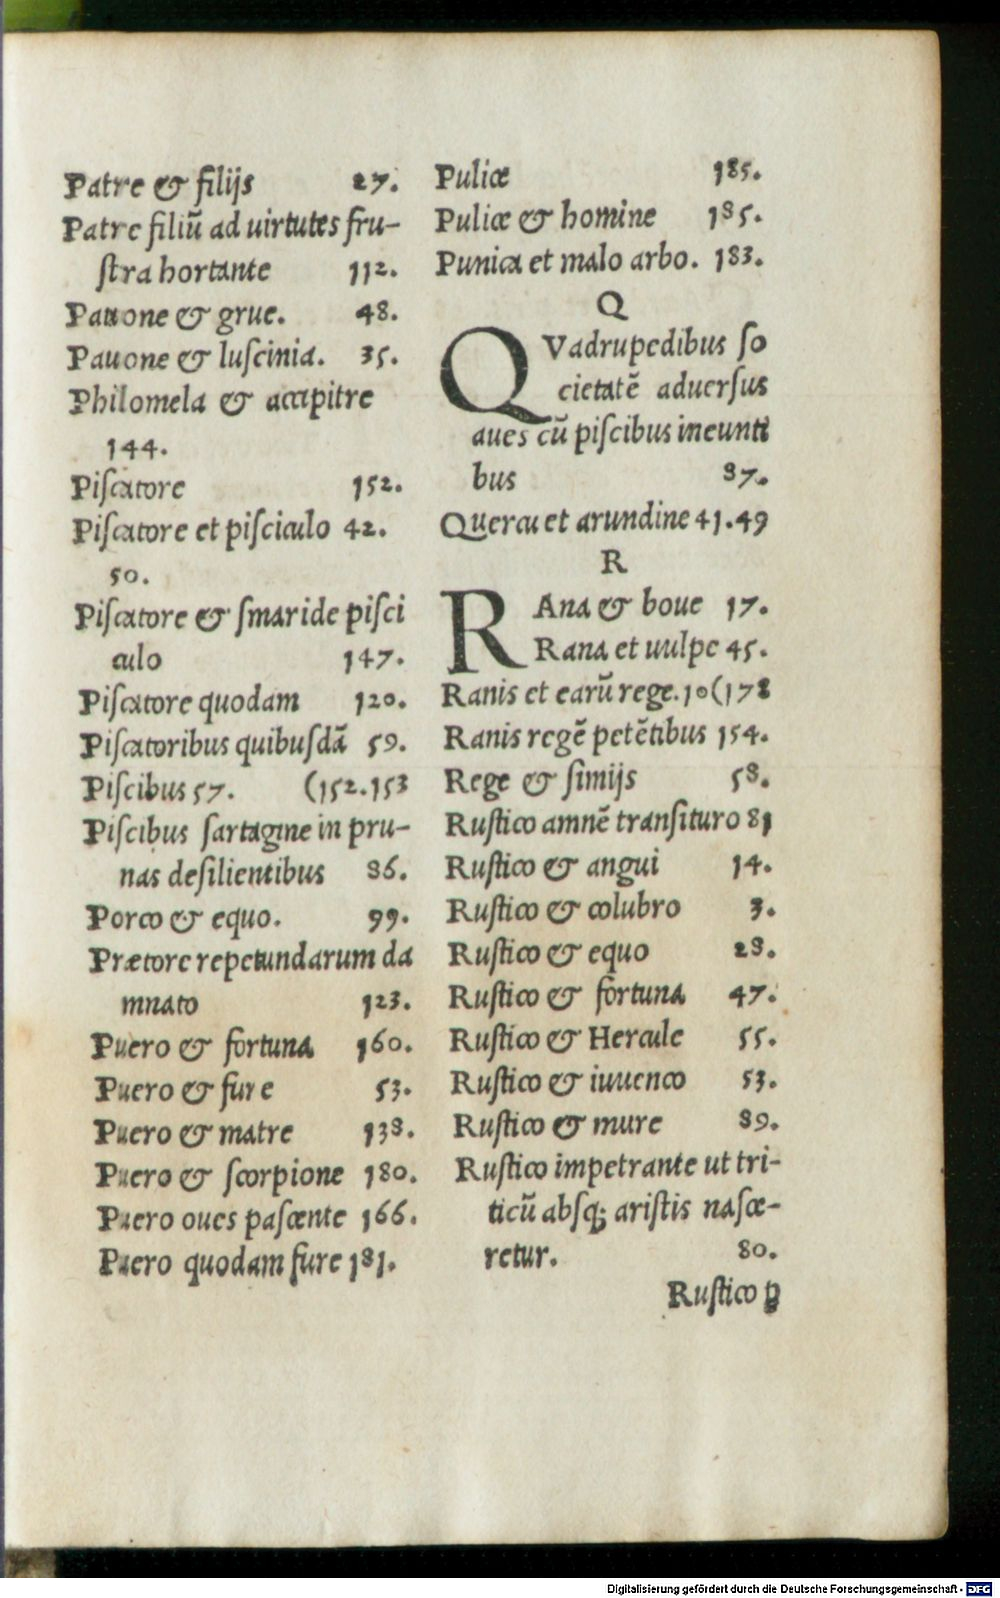 Patre & filijs 27.
Patre filiū ad uirtutes fru-
ſtra hortante 112.
Pauone & grue. 48.
Pauone & luſcinia. 35.
Philomela & accipitre
144.
Piſcatore 152.
Piſcatore et piſciculo 42.
50.
Piſcatore & ſmaride piſci
culo 147.
Piſcatore quodam 120.
Piſcatoribus quibuſdā 59.
Piſcibus 57. (152.153
Piſcibus ſartagine in pru-
nas deſilientibus 86.
Porco & equo. 99.
Prætore repetundarum da
mnato 123.
Puero & fortuna 160.
Puero & fure 53.
Puero & matre 138.
Puero & ſcorpione 180.
Puero oues paſcente 166.
Puero quodam fure 181.
Pulice 185.
Pulice & homine 185.
Punica et malo arbo. 183.
Q
QVadrupedibus ſo
cietatē aduerſus
aues cū piſcibus ineunti
bus 87.
Quercu et arundine 41.49
R
RAna & boue 17.
Rana et uulpe 45.
Ranis et earū rege. 10(178
Ranis regē petētibus 154.
Rege & ſimijs 58.
Ruſtico amnē tranſituro 81
Ruſtico & angui 14.
Ruſtico & colubro 3.
Ruſtico & equo 28.
Ruſtico & fortuna 47.
Ruſtico & Hercule 55.
Ruſtico & iuuenco 53.
Ruſtico & mure 89.
Ruſtico impetrante ut tri-
ticū abſq; ariſtis naſce-
retur. 80.
Ruſtico ꝑ
Digitalisierung gefördert durch die Deutsche Forschungsgemeinschaft - DFG